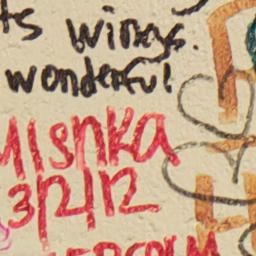 ts wings.
wonderful
Mishka
3/2/12